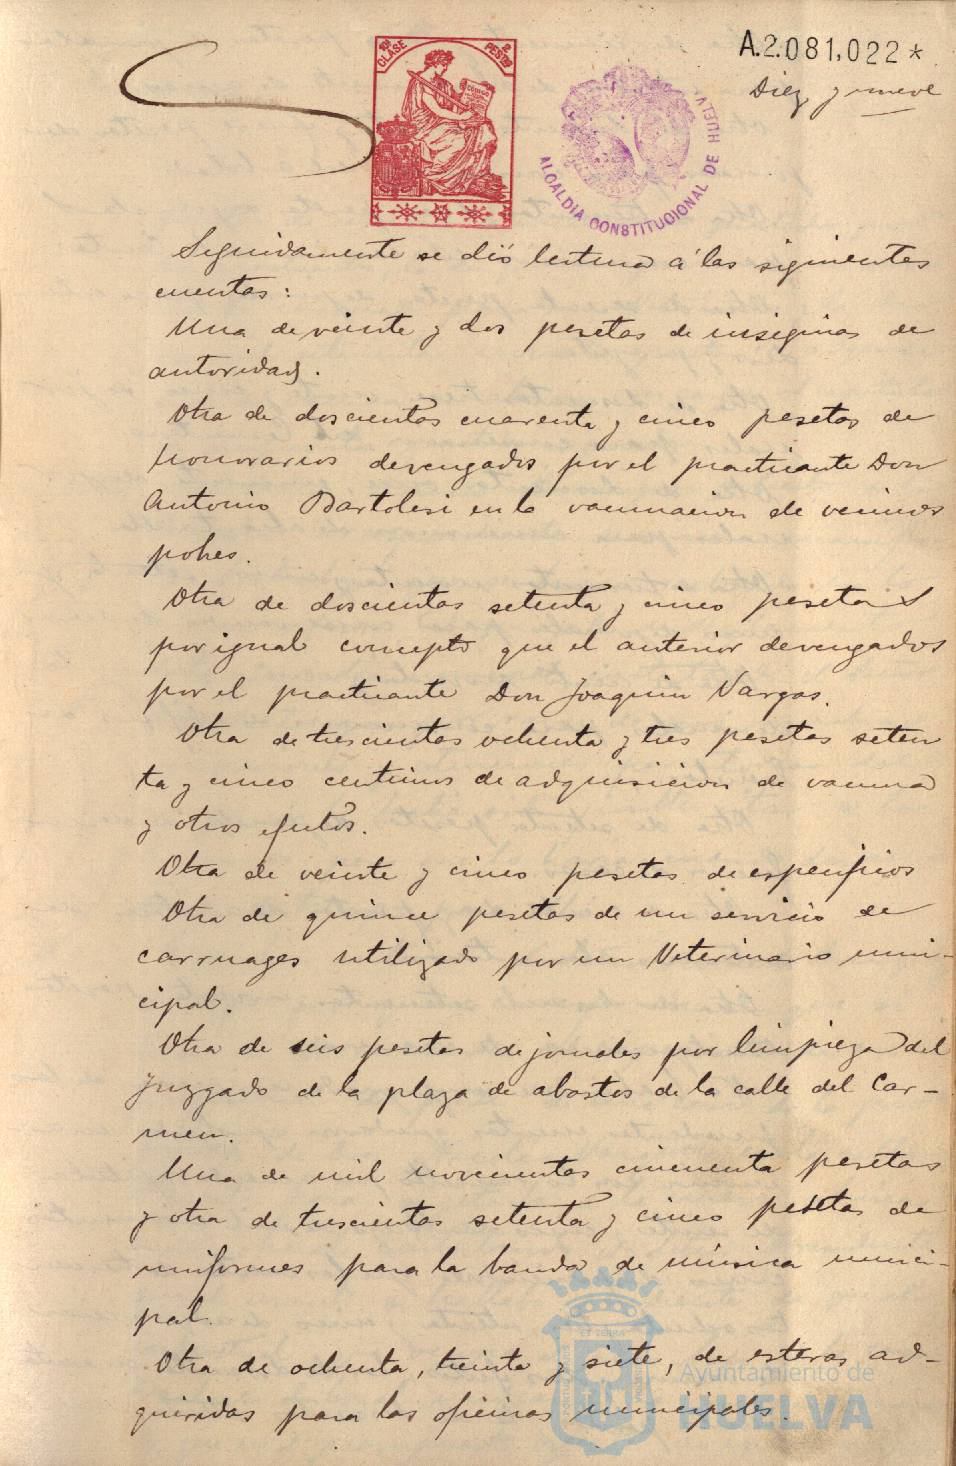 A.2.081,022*
Diez y nueve
10ª CLASE
2 PESETAS
CODIGO
ALCALDIA CONSTITUCIONAL DE HUELVA
Seguidamente se dió lectura á las siguientes
cuentas:
Una de veinte y dos pesetas de insignias de
autoridad.
Otra de doscientas cuarenta y cinco pesetas de
honorarios devengados por el practicante Don
Antonio Bartolesi en la vacunacion de vecinos
pobres.
Otra de doscientas setenta y cinco pesetas
por igual concepto que el anterior devengados
por el practicante Don Joaquin Vargas.
Otra de trescientas ochenta y tres pesetas seten
ta y cinco centimos de adquisicion de vacuna
y otros efectos.
Otra de veinte y cinco pesetas de especificos
Otra de quince pesetas de un servicio de
carruages utilizado por un Veterinario muni-
cipal.
Otra de seis pesetas de jornales por limpieza del
juzgado de la plaza de abastos de la calle del Car-
men.
Una de mil novecientas cincuenta pesetas
y otra de trescientas setenta y cinco pesetas de
uniformes para la banda de música munici-
pal.
Otra de ochenta, treinta y siete, de esteras ad-
quiridas para las oficinas municipales.
Ayuntamiento de
HUELVA